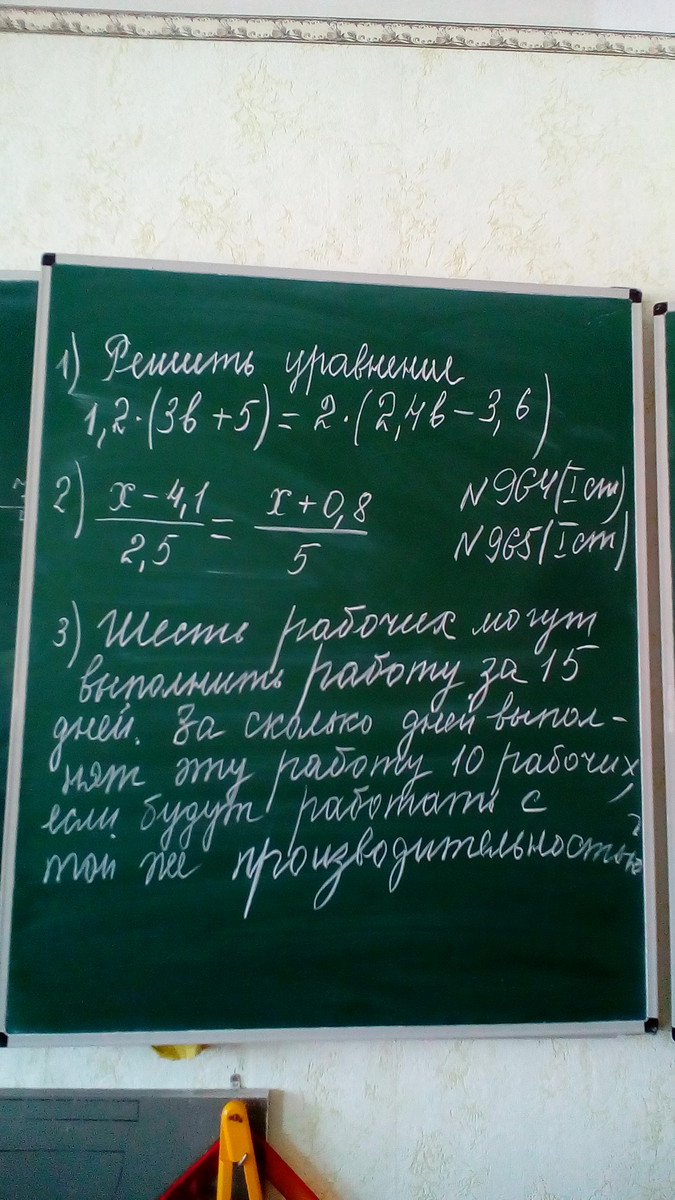 1) Решить уравнение
1,2·(3в+5)=2·(2,4в-3,6)
2) x-4,1/2,5 = x+0,8/5
N964(I ст)
N965(I ст)
3) Шесть рабочих могут
выполнить работу за 15
дней. За сколько дней выпол-
нят эту работу 10 рабочих,
если будут работать с
той же производительностью?